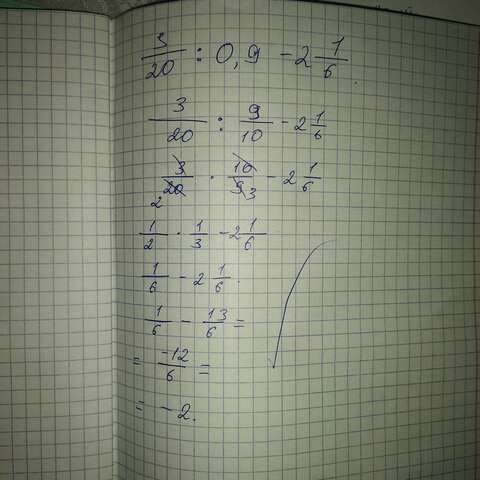 3/20 : 0,9 - 2 1/6
3/20 : 9/10 - 2 1/6
2 3/20 · 10/9 3 - 2 1/6
1/2 · 1/3 - 2 1/6
1/6 - 2 1/6.
1/6 - 13/6 =
= -12/6 =
= - 2.